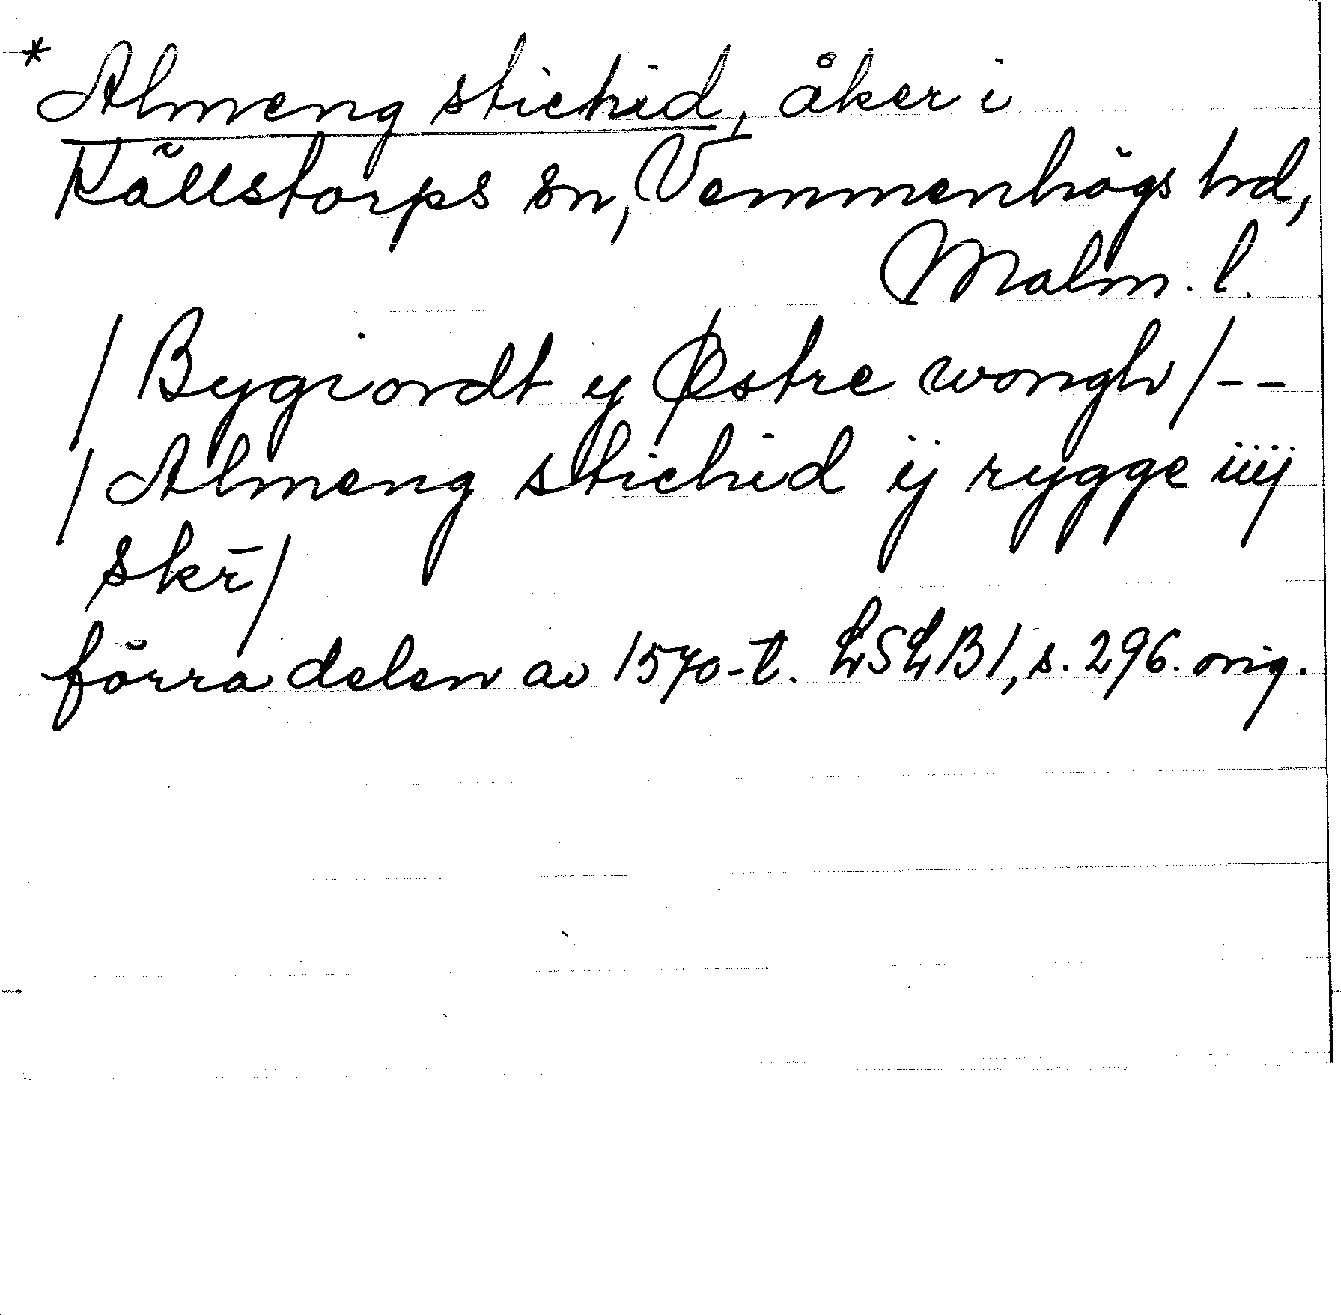 * Almeng stichid, åker i
Källstorps sn, Vemmenhögs hd,
Malm. l.
/ Bygiordt y Østre wongh / - -
/ Almeng stichid ij rygge iiij
skr̄ /
förra delen av 1570-t. LSLB1, s. 296. orig.